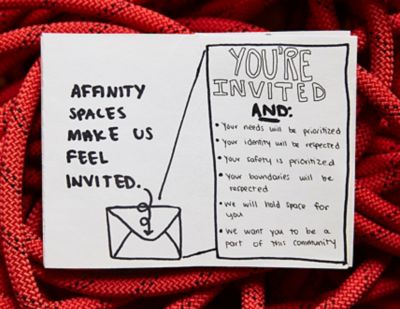 AFFINITY
SPACES
MAKE US
FEEL
INVITED.
YOU'RE
INVITED
AND:
• Your needs will be prioritized
• Your identity will be respected
• Your safety is prioritized
• Your boundaries will be
respected
• We will hold space for
you
• We want you to be a
part of this community